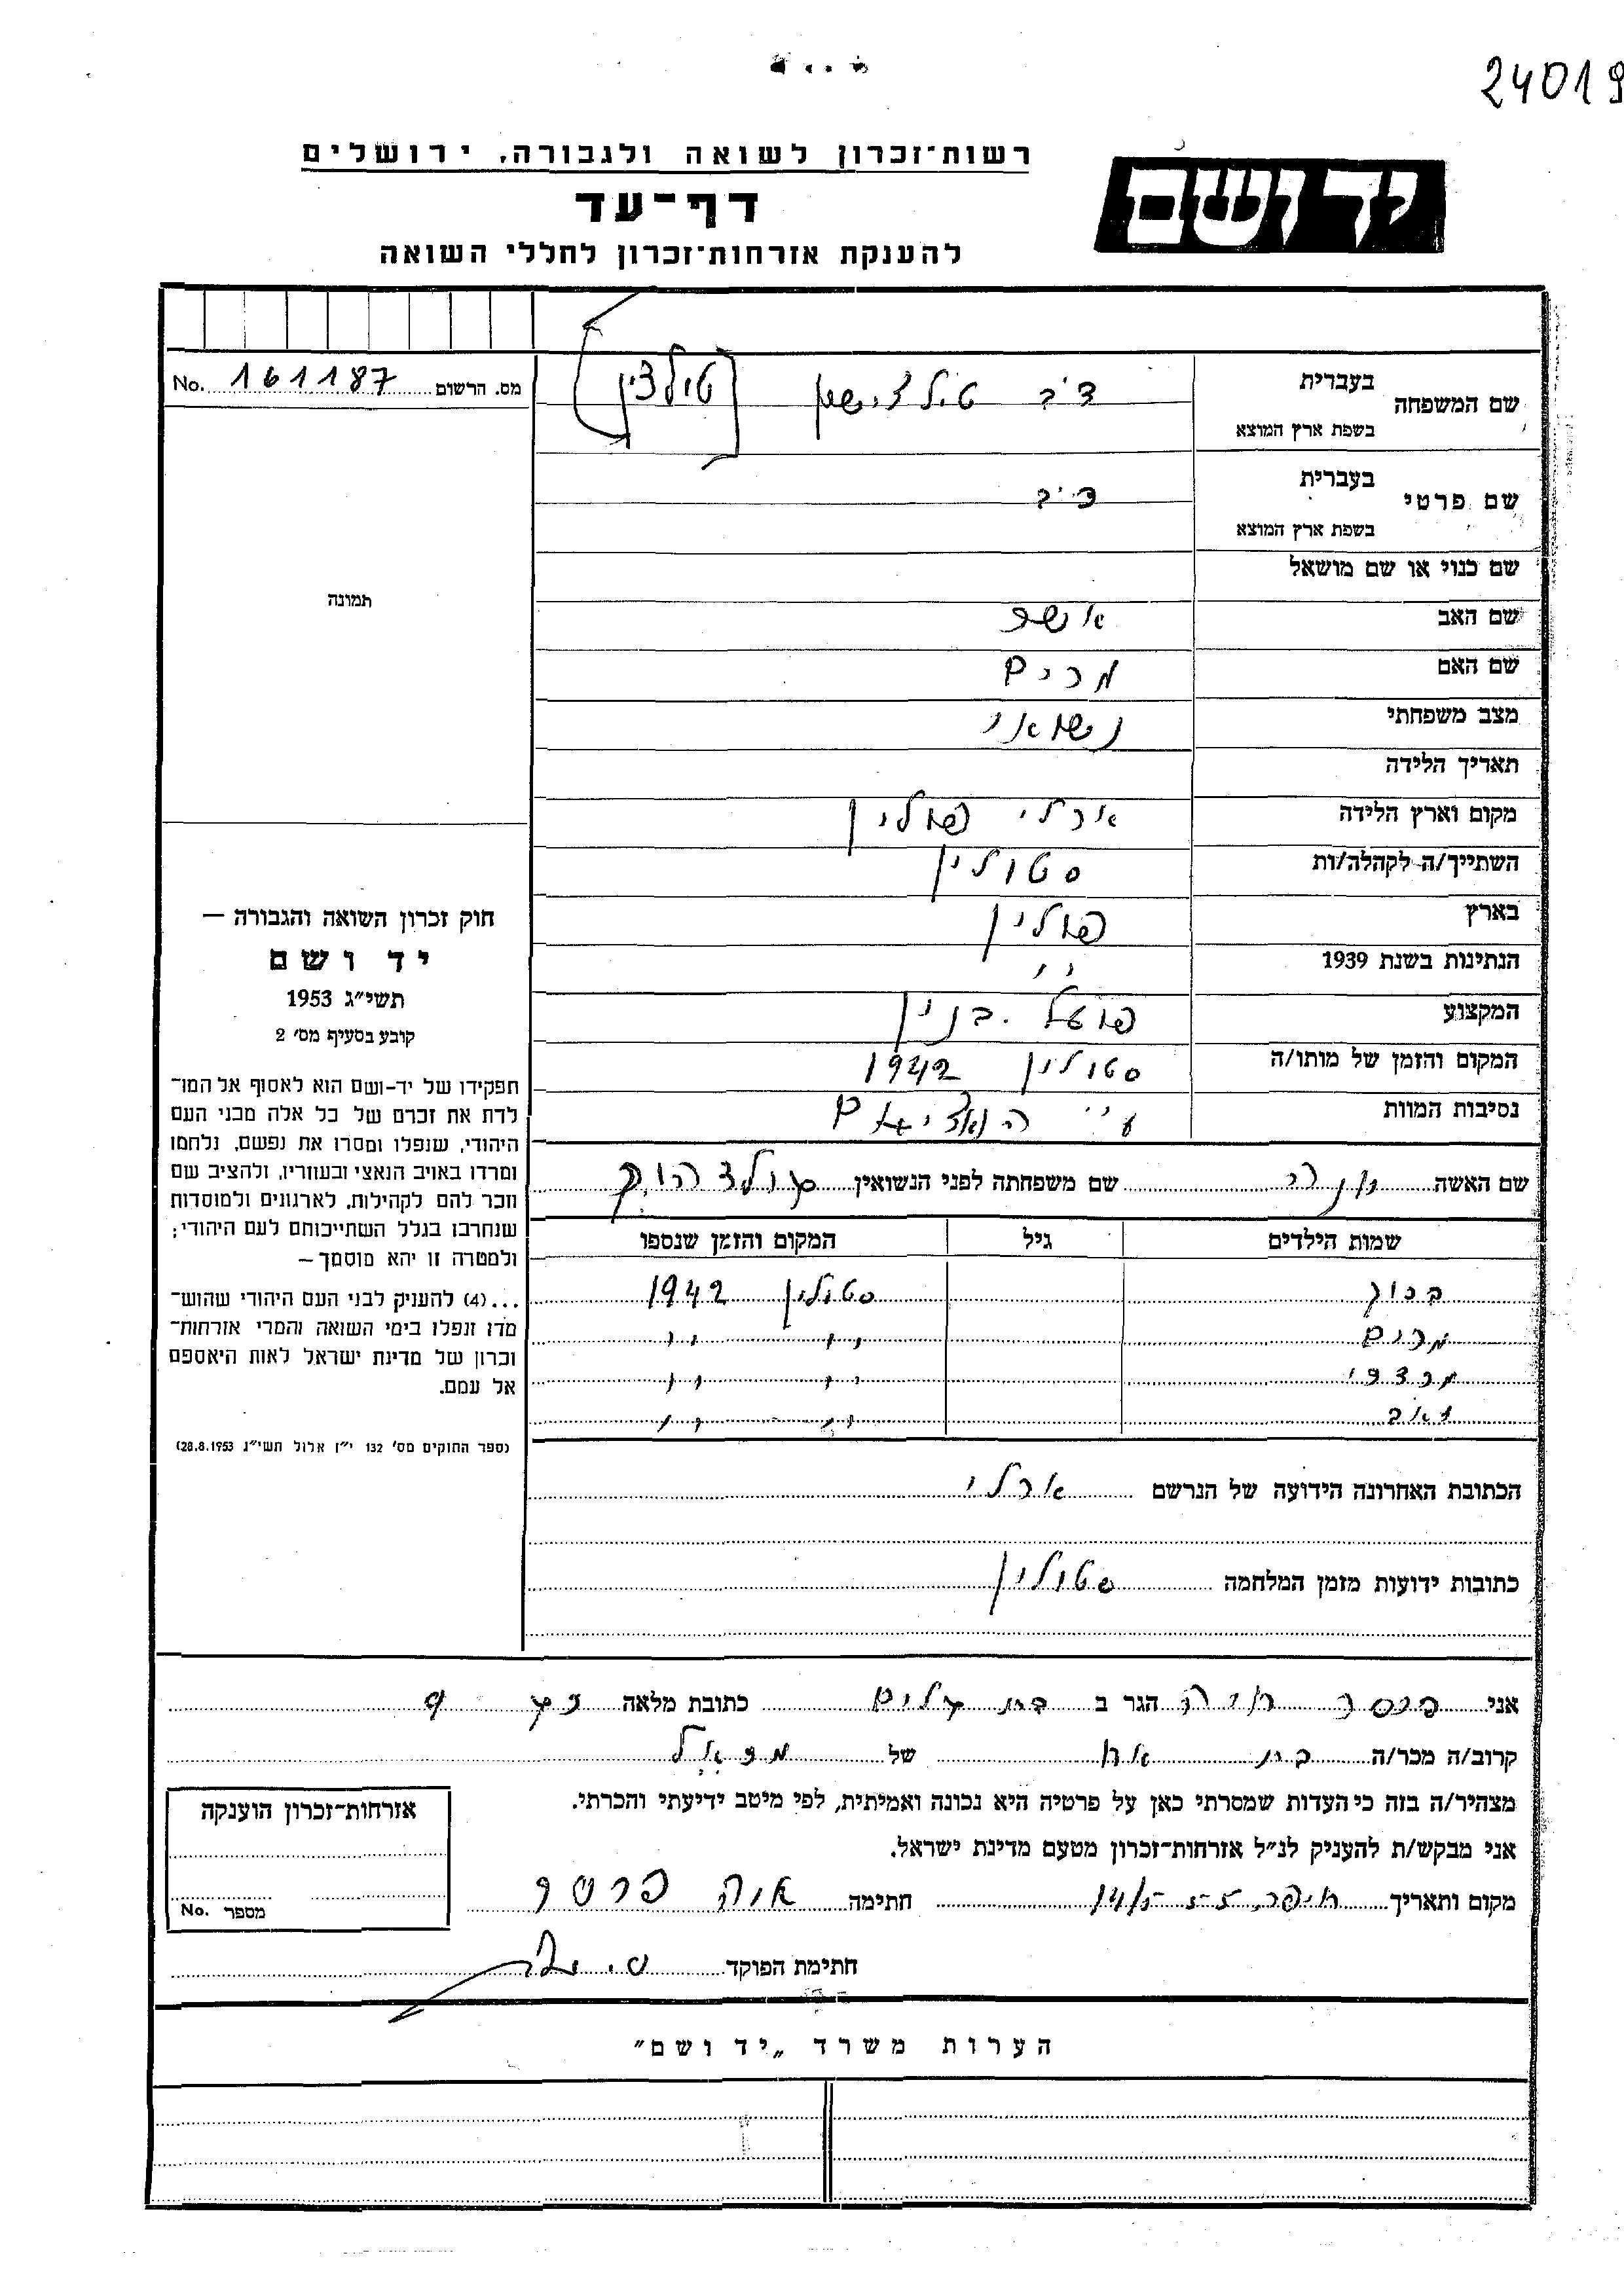 24019
רשות־זכרון לשואה ולגבורה, ירושלים
יד ושם
דף־עד
להענקת אזרחות־זכרון לחללי השואה
No. 161187 מס. הרשום
שם המשפחה בעברית טולצין
בשפת ארץ המוצא
שם פרטי בעברית
בשפת ארץ המוצא
שם כנוי או שם מושאל
שם האב אשר
שם האם מרים
מצב משפחתי נשואי
תאריך הלידה
מקום וארץ הלידה אורלי פולין
השתייך/ה לקהלה/ות סטולין
בארץ פולין
הנתינות בשנת 1939 ״
המקצוע פועל בנין
המקום והזמן של מותו/ה סטולין 1942
נסיבות המוות ע״י הנאציאים
תמונה
חוק זכרון השואה והגבורה —
יד ושם
תשי״ג 1953
קובע בסעיף מס׳ 2
תפקידו של יד-ושם הוא לאסוף אל המו־
לדת את זכרם של כל אלה מבני העם
היהודי, שנפלו ומסרו את נפשם, נלחמו
ומרדו באויב הנאצי ובעוזריו, ולהציב שם
וזכר להם לקהילות, לארגונים ולמוסדות
שנחרבו בגלל השתייכותם לעם היהודי;
ולמטרה זו יהא מוסמך —
...(4) להעניק לבני העם היהודי שהוש־
מדו ונפלו בימי השואה והמרי אזרחות־
זכרון של מדינת ישראל לאות היאספם
אל עמם.
(ספר החוקים מס׳ 132 י״ז אלול תשי״ג 28.8.1953)
שם האשה שם משפחתה לפני הנשואין
שמות הילדים גיל המקום והזמן שנספו
ברוך סטולין 1942
מרים ״ ״
מרדכי ״ ״
זאב ״ ״
הכתובת האחרונה הידועה של הנרשם אורלי
כתובות ידועות מזמן המלחמה סטולין
אני חיה הגר ב בת גלים כתובת מלאה 9
קרוב/ה מכר/ה בת אח של
מצהיר/ה בזה כי העדות שמסרתי כאן על פרטיה היא נכונה ואמיתית, לפי מיטב ידיעתי והכרתי.
אני מבקש/ת להעניק לנ״ל אזרחות־זכרון מטעם מדינת ישראל.
מקום ותאריך חיפה 14/5-55 חתימה
חתימת הפוקד
אזרחות־זכרון הוענקה
מספר No.
הערות משרד „יד ושם״